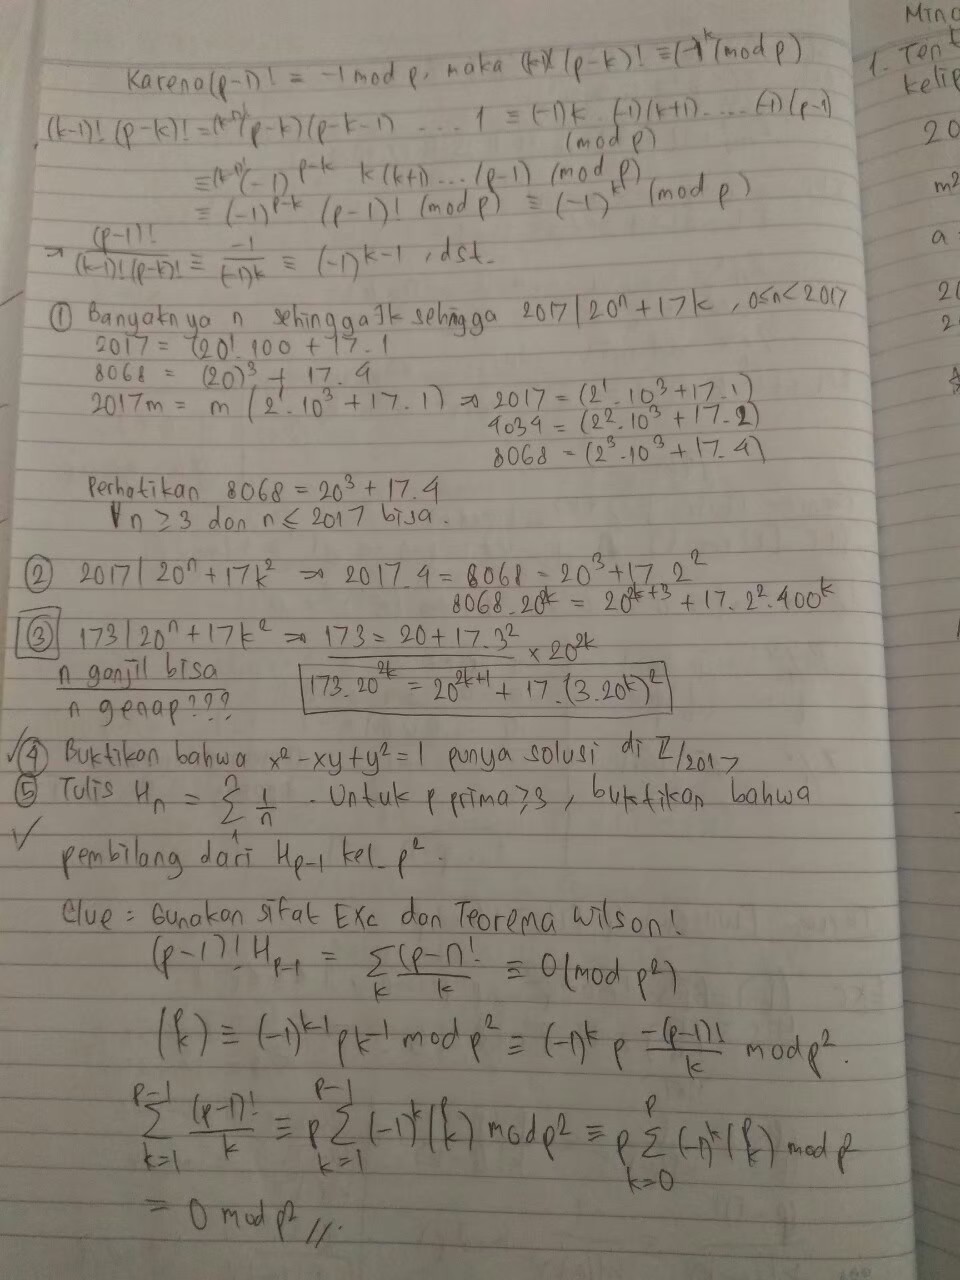 Karena (p-1)! = -1 mod p, maka (k-1)! (p-k)! ≡ (-1)^k (mod p)
(k-1)! (p-k)! = (k-1)! (p-k)(p-k-1) .... 1 ≡ (-1)k (-1)(k+1) .... (-1)(p-1)
(mod p)
≡ (k-1)! (-1)^{p-k} k(k+1)...(p-1) (mod p)
≡ (-1)^{p-k} (p-1)! (mod p) ≡ (-1)^k (mod p)
→ (p-1)!/((k-1)!(p-k)!) ≡ -1/(-1)^k ≡ (-1)^{k-1}, dst.
① Banyaknya n sehingga ∃k sehingga 2017 | 20^n + 17k, 0≤n<2017
2017 = (20^1 . 100 + 17.1
8068 = (20)^3 + 17.4
2017m = m (2^1 . 10^3 + 17.1) ⇒ 2017 = (2^1 . 10^3 + 17.1)
4034 = (2^2 . 10^3 + 17.2)
8068 = (2^3 . 10^3 + 17.4)
Perhatikan 8068 = 20^3 + 17.4
∀n ≥ 3 dan n ≤ 2017 bisa.
② 2017 | 20^n + 17k^2 ⇒ 2017.4 = 8068 = 20^3 + 17.2^2
8068.20^{2k} = 20^{2k+3} + 17.2^2.400^k
③ 173 | 20^n + 17k^2 ⇒ 173 = 20 + 17.3^2 × 20^{2k}
n ganjil bisa
173.20^{2k} = 20^{2k+1} + 17.(3.20^k)^2
n genap???
④ Buktikan bahwa x^2 - xy + y^2 = 1 punya solusi di Z/2017
⑤ Tulis H_n = Σ_1^n 1/n . Untuk p prima ≥ 3, buktikan bahwa
pembilang dari H_{p-1} kel. p^2.
Clue = Gunakan sifat Exc dan Teorema Wilson!
(p-1)! H_{p-1} = Σ_k (p-1)!/k ≡ 0 (mod p^2)
(p k) ≡ (-1)^{k-1} p k^{-1} mod p^2 ≡ (-1)^k p -(p-1)!/k mod p^2.
Σ_{k=1}^{p-1} (p-1)!/k ≡ p Σ_{k=1}^{p-1} (-1)^k (p k) mod p^2 ≡ p Σ_{k=0}^{p} (-1)^k (p k) mod p^2
= 0 mod p^2 //.
Mino
1. Tent
kelip
20
m^2
a =
20
2